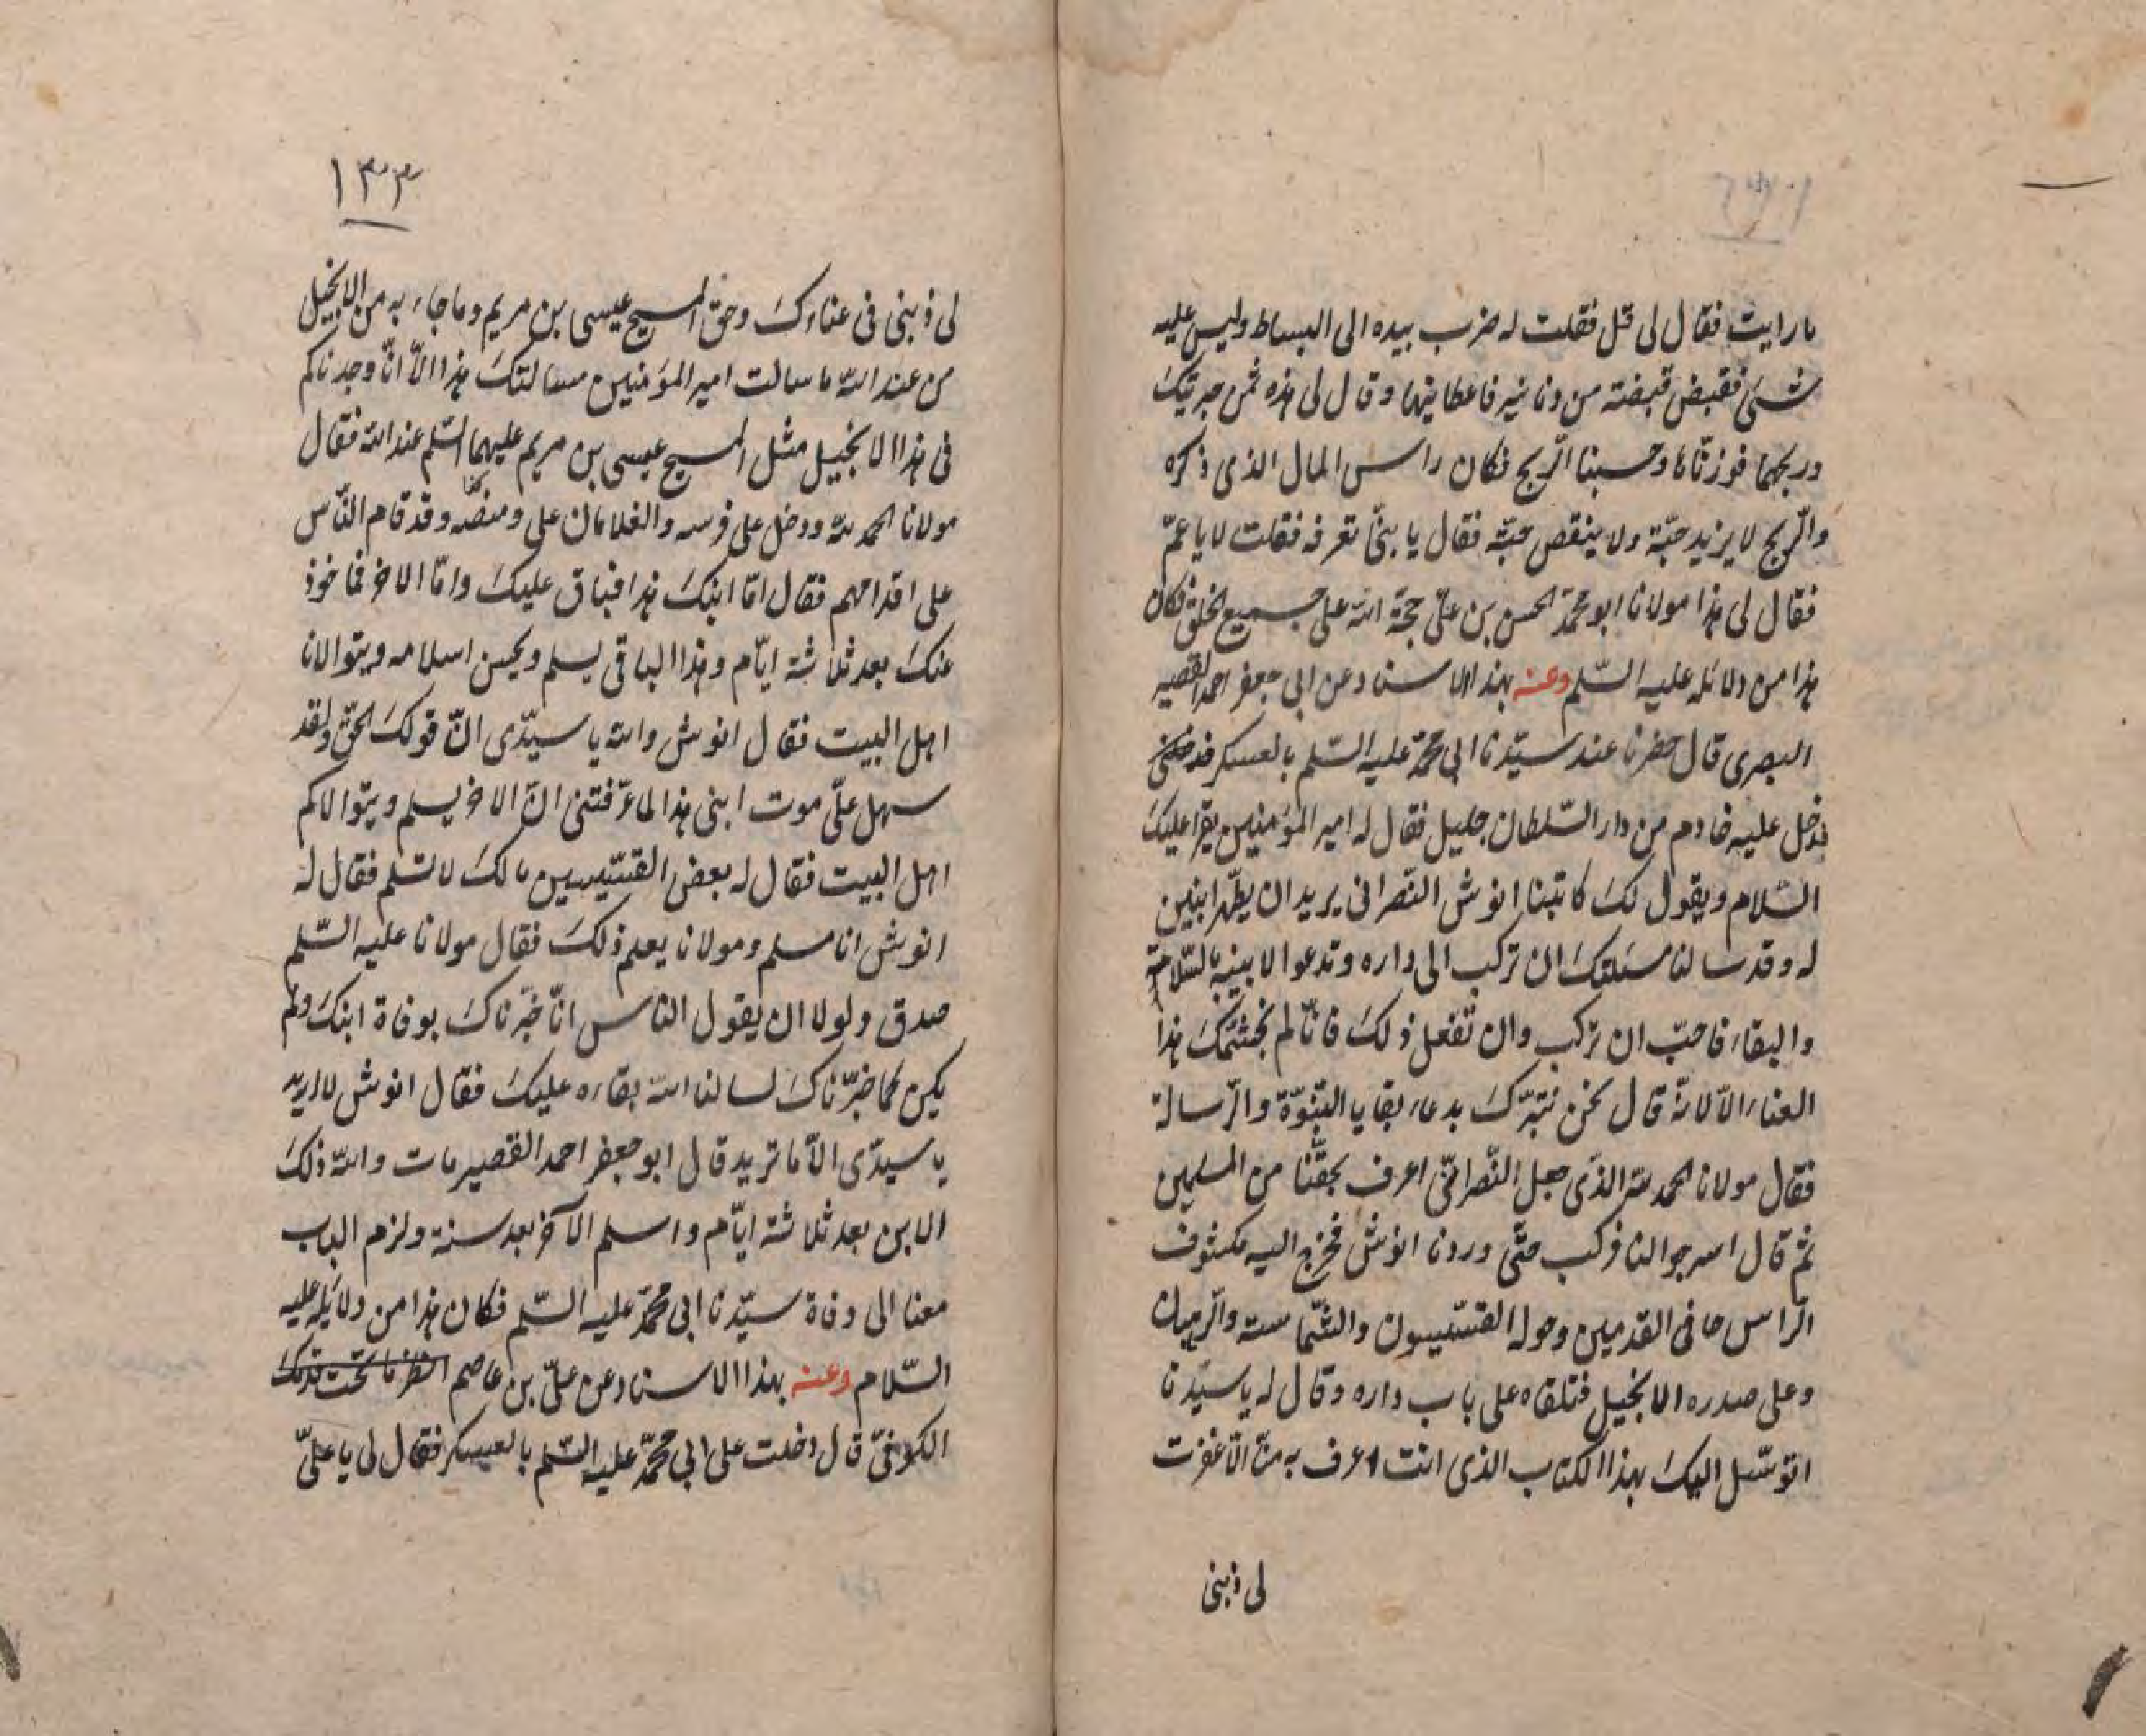 ما رايت فقال لى قل فقلت له ضرب بيده الى البساط وليس عليه
شئ فقبض قبضة من دنانير فاعطانيها وقال لى هذه ثمن حبرتيك
وربحهما فوزنّاها وحسبنا الربح فكان راس المال الذى ذكره
والربح لا يزيد حبّة ولا ينقص حبّة فقال يا بنىّ تعرفه فقلت لا يا عمّ
فقال لى هذا مولانا ابو محمّد الحسن بن علىّ حجة الله على جميع الخلق فكان
هذا من دلائله عليه السّلم وعنه بهذا الاسناد عن ابى جعفر احمد القصير
البصرى قال حضرنا عند سيّدنا ابى محمّد عليه السّلم بالعسكر
فدخل عليه خادم من دار السّلطان جليل فقال له امير المؤمنين يقرا عليك
السّلام ويقول لك كاتبنا انوش النّصرانى يريد ان يطهّر ابنين
له وقد سالنا مسئلتك ان تركب الى داره وتدعوا لابنيه بالسّلامة
والبقاء فاحبّ ان تركب وان تفعل ذلك فانّا لم نجشّمك هذا
العناء الّا لانّه قال نحن نتبرّك بدعاء بقايا النّبوّة والرّسالة
فقال مولانا الحمد لله الذى جعل النّصرانىّ اعرف بحقّنا من المسلمين
ثم قال اسرجوا لنا فركب حتّى وردنا انوش فخرج اليه مكشوف
الرّاس حافى القدمين وحوله القسّيسون والشّماسته والرّهبان
وعلى صدره الانجيل فتلقاه على باب داره وقال له يا سيّدنا
اتوسّل اليك بهذا الكتاب الذى انت اعرف به منّا الّا غفرت
لى ذبنى
١٣٣
لى ذبنى فى عناءك وحق المسيح عيسى بن مريم وما جاء به من الانجيل
من عند الله ما سالت امير المؤمنين مسالتك هذا الّا انّا وجدناكم
فى هذا الانجيل مثل المسيح عيسى بن مريم عليهما السّلم عند الله فقال
مولانا الحمد لله ودخل على فرسه والغلامان على وقد قام النّاس
على اقدامهم فقال امّا ابنك هذا فباق عليك وامّا الاخر فماخوذ
عنك بعد ثلاثة ايّام وهذا الباقى يسلم ويحسن اسلامه ويتوالانا
اهل البيت فقال انوش والله يا سيّدى انّ قولك الحق ولقد
سهل علىّ موت ابنى هذا لما عرّفتنى انّ الاخر يسلم ويتوالاكم
اهل البيت فقال له بعض القسّيسين مالك لا تسلم فقال له
انوش انا مسلم ومولانا يعلم ذلك فقال مولانا عليه السّلم
صدق ولولا ان يقول الناس انّا خبّرناك بوفاة ابنك ولم
يكن كما خبّرناك لسالنا الله بقاءه عليك فقال انوش لا اريد
يا سيدّى الّا ما تريد قال ابو جعفر احمد القصير مات والله ذلك
الابن بعد ثلاثة ايّام واسلم الآخر بعد سنة ولزم الباب
معنا الى وفاة سيّدنا ابى محمّد عليه السّلم فكان هذا من دلائله عليه
السّلام وعنه بهذا الاسناد عن علىّ بن عاصم انظر ما تحت قدمك
الكوفىّ قال دخلت على ابى محمّد عليه السّلم بالعسكر فقال لى يا علىّ